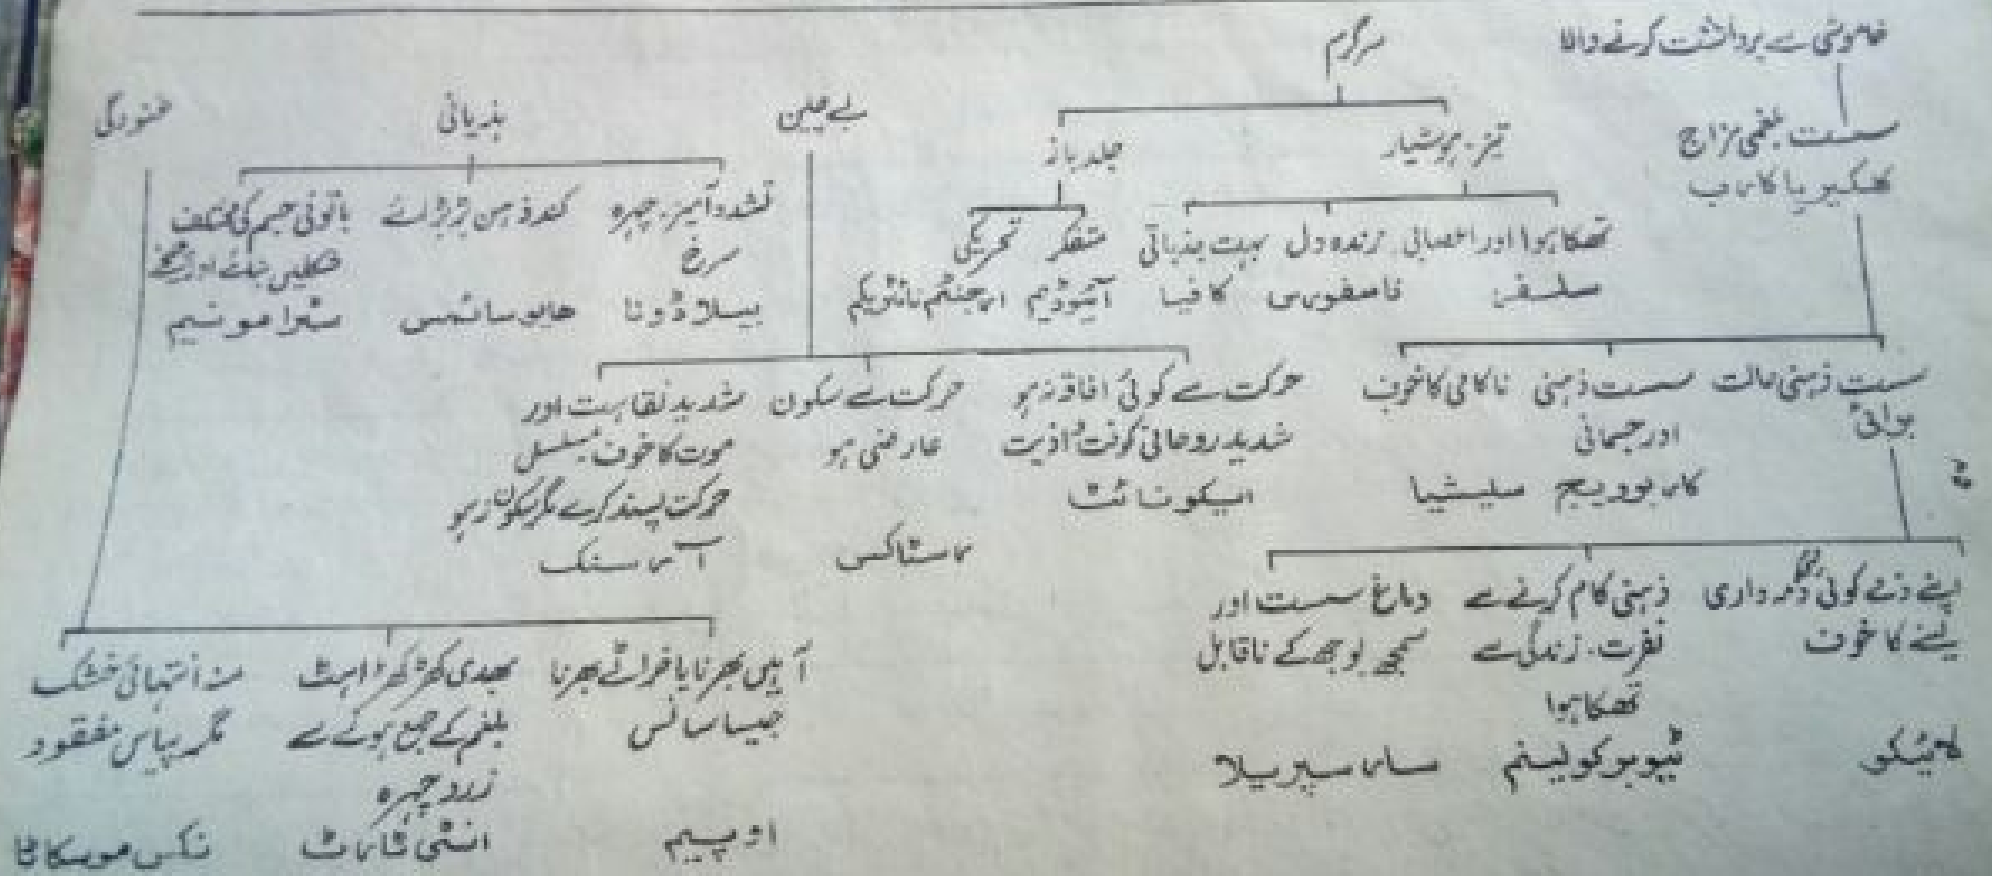 خاموشی سے برداشت کرنے والا
سست بلغمی مزاج
کلکیریا کارب
سرگرم
تیز۔ ہوشیار
جلد باز
تھکا ہوا اور اعصابی
سلفر
زندہ دل
فاسفورس
بہت جذباتی
کافیا
متفکر
آئیوڈیم
تحریکی
ارجنٹم نائٹریکم
بے چین
ہذیانی
تشدد آمیز۔ چہرہ
سرخ
بیلاڈونا
کند ذہن بڑبڑائے
ہایوسائمس
باتونی جسم کی مختلف
شکلیں بنائے اور
سٹرامونیم
غنودگی
سست ذہنی حالت
سست ذہنی
اور جسمانی
کاربوویج
ناکامی کا خوف
سلیشیا
حرکت سے کوئی افاقہ نہ ہو
شدید روحانی کوفت اذیت
ایکونائٹ
حرکت سے سکون
عارضی ہو
رسٹاکس
شدید نقاہت اور
موت کا خوف مسلسل
حرکت پسند کرے مگر سکون نہ ہو
آرسنک
اپنے ذمے کوئی ذمہ داری
لینے کا خوف
لائیکو
ذہنی کام کرنے سے
نفرت۔ زندگی سے
تھکا ہوا
ٹیوبرکولینم
دماغ سست اور
سمجھ بوجھ کے ناقابل
سارسپریلا
آہیں بھرنا یا خراٹے بھرنا
جیسا سانس
اوپیم
بھدی کھڑکھڑاہٹ
بلغم کے جمع ہونے سے
زرد چہرہ
انٹی ٹارٹ
منہ انتہائی خشک
مگر پیاس مفقود
نکس موسکاٹا